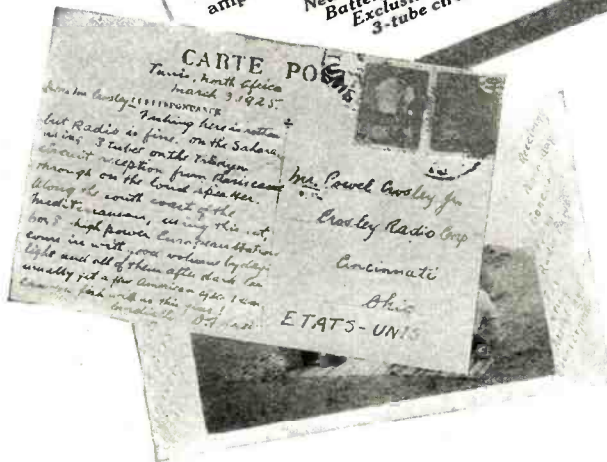 amp
Batter
Exclusiv
3-tube circ
CARTE PO
Tunis, North Africa
March 3, 1925
Crosley
CORRESPONDANCE
Fishing here is rotten
but Radio is fine. On the Sahara
using 3 tubes on the Trirdyn
Circuit reception from Paris came
through on the loud speaker.
Along the south coast of the
Mediterranean, using this set,
high power European Stations
come in with good volume by day
light and all of them after dark. Can
usually get a few American also.
fish with us this year!
Cordially
Mr. Powel Crosley Jr
Crosley Radio Corp
Cincinnati
Ohio
ETATS-UNIS